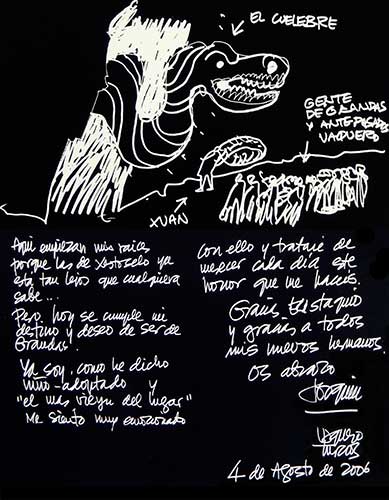 EL CUELEBRE
GENTE
DE GRANDAS
Y ANTEPASADO
VAQUERO
XUAN
Aqui empiezan mis raices
porque las de Xestoselo ya
esta tan lejos que cualquiera
sabe...
Pero, hoy se cumple mi
destino y deseo de ser de
Grandas.
Ya soy, como he dicho
niño-adoptado y
"el mas vieyu del lugar"
Me siento muy emocionado
con ello y tratare de
merecer cada dia este
honor que me haceis.
Gracias
y gracias a todos
mis nuevos hermanos.
os abraza
Joaquin
VAQUERO
TURCIOS
4 de Agosto de 2006